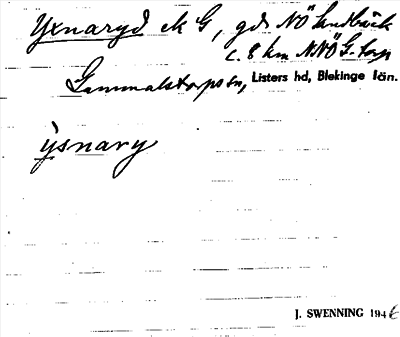 Yxnaryd ek G, gds NÖ Sandbäck
c. 8 km NNÖ G-torp
Gammalstorps sn, Listers hd, Blekinge län.
ỳsnary
J. SWENNING 194